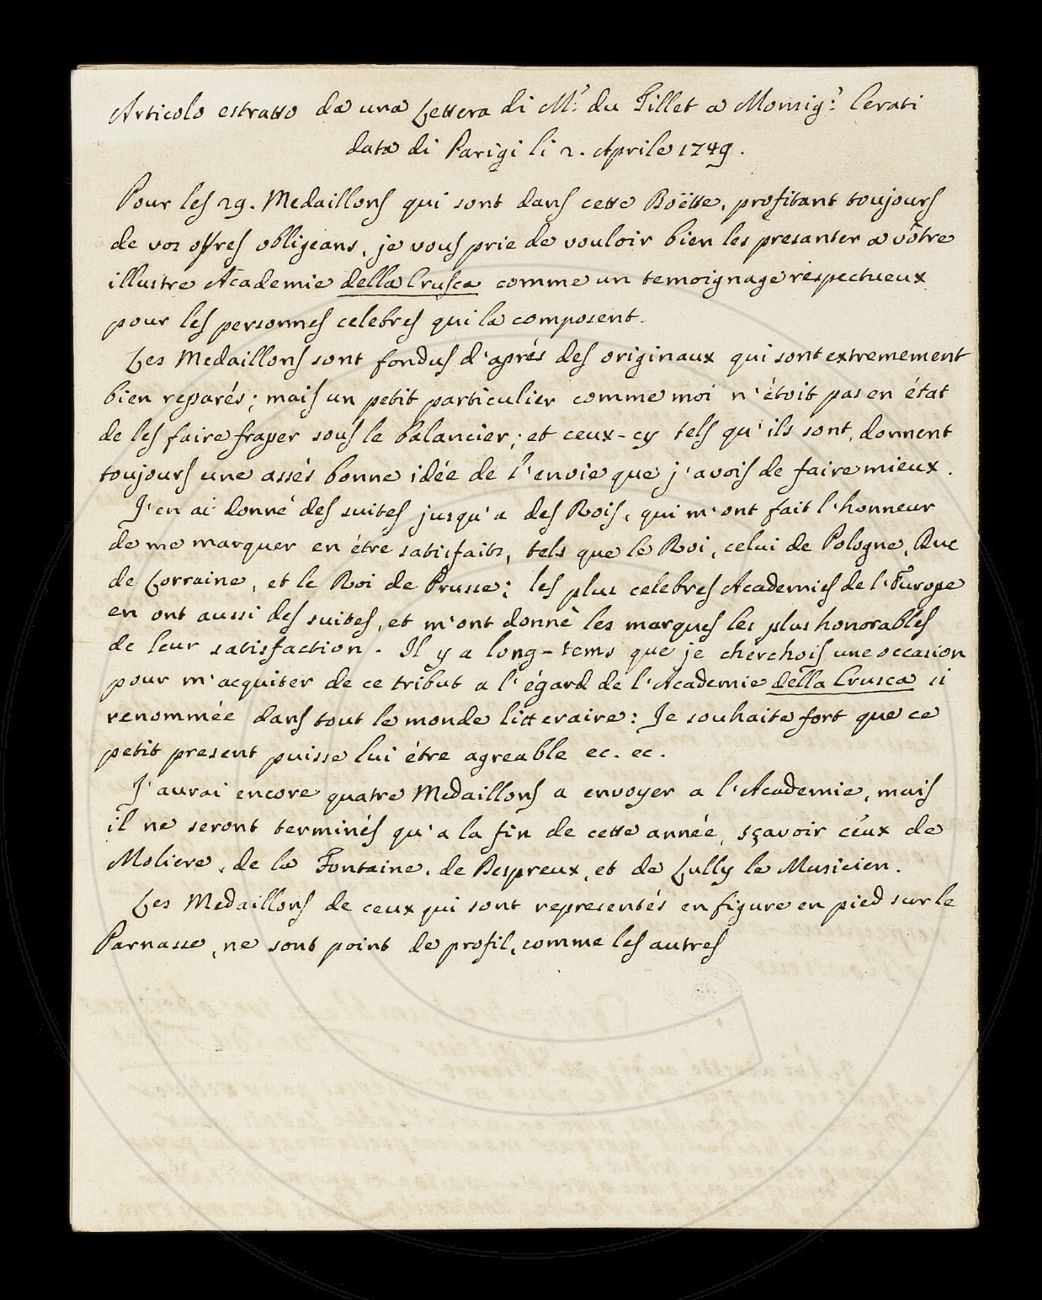 Articolo estratto da una Lettera di M.r du Tillet a Monsig.r Cerati
data di Parigi li 2. Aprile 1749.
Pour les 29. Medaillons qui sont dans cette Boëtte, profitant toujours
de vos offres obligeans, je vous prie de vouloir bien les presanter a vôtre
illustre Academie della Crusca comme un temoignage respectueux
pour les personnes celebres qui la composent.
Les Medaillons sont fondus d'aprés des originaux qui sont extremement
bien reparés; mais un petit particulier comme moi n'étoit pas en état
de les faire fraper sous le balancier; et ceux-cy tels qu'ils sont, donnent
toujours une assés bonne idée de l'envie que j'avois de faire mieux.
J'en ai donné des suites jusqu'a des Rois, qui m'ont fait l'honneur
de me marquer en étre satisfaits, tels que le Roi, celui de Pologne, Duc
de Lorraine, et le Roi de Prusse; les plus celebres Academies de l'Europe
en ont aussi des suites, et m'ont donné les marques les plus honorables
de leur satisfaction. Il y a long-tems que je cherchois une occasion
pour m'acquiter de ce tribut a l'égard de l'Academie della Crusca si
renommée dans tout le monde litteraire: Je souhaite fort que ce
petit present puisse lui étre agreable ec. ec.
J'aurai encore quatre Medaillons a envoyer a l'Academie, mais
il ne seront terminés qu'a la fin de cette année, sçavoir ceux de
Moliere, de la Fontaine, de Despreux, et de Lully le Musicien.
Les Medaillons de ceux qui sont representés en figure en pied sur le
Parnasse, ne sont point de profil, comme les autres